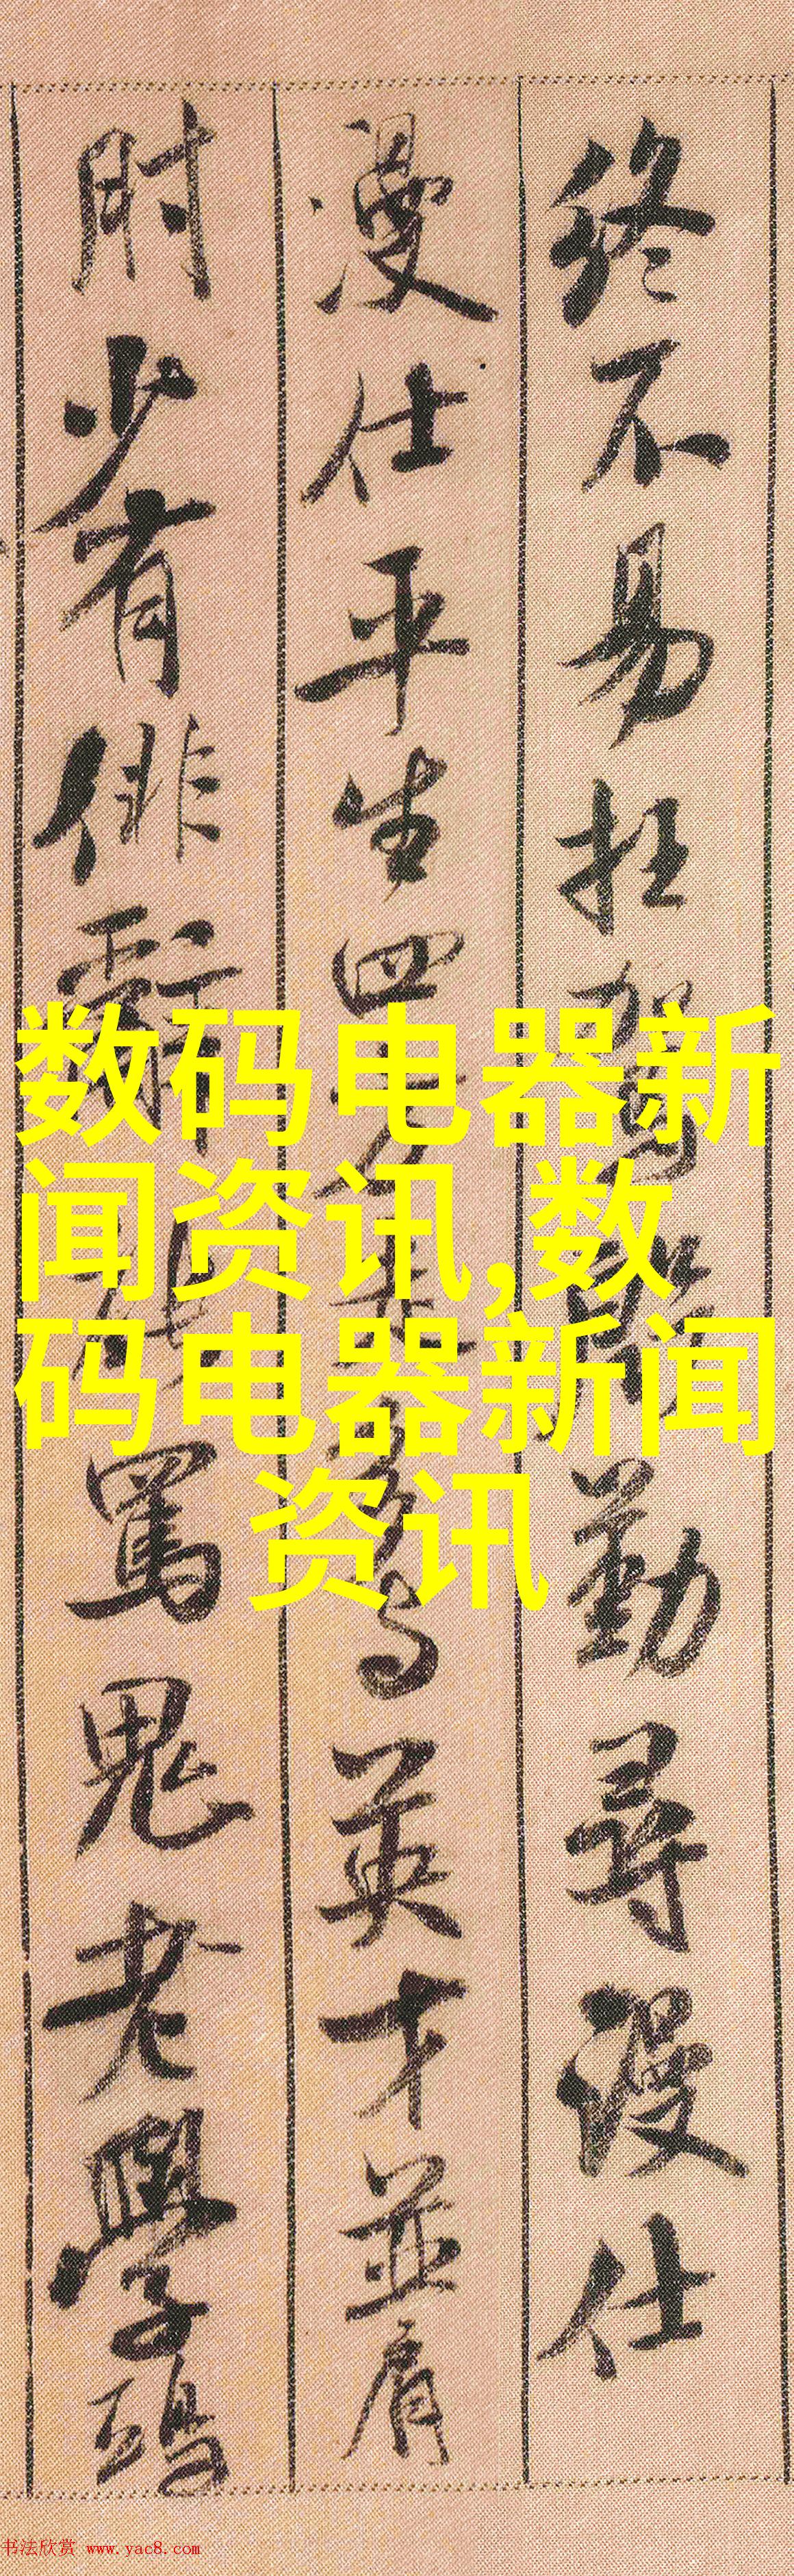 终不易枉驾 勤寻漫仕
漫仕平生四方 英才並肩
时少有俳辞 骂鬼老学
数码电器新
闻资讯,数
码电器新闻
资讯
书法欣赏 www.yac8.com